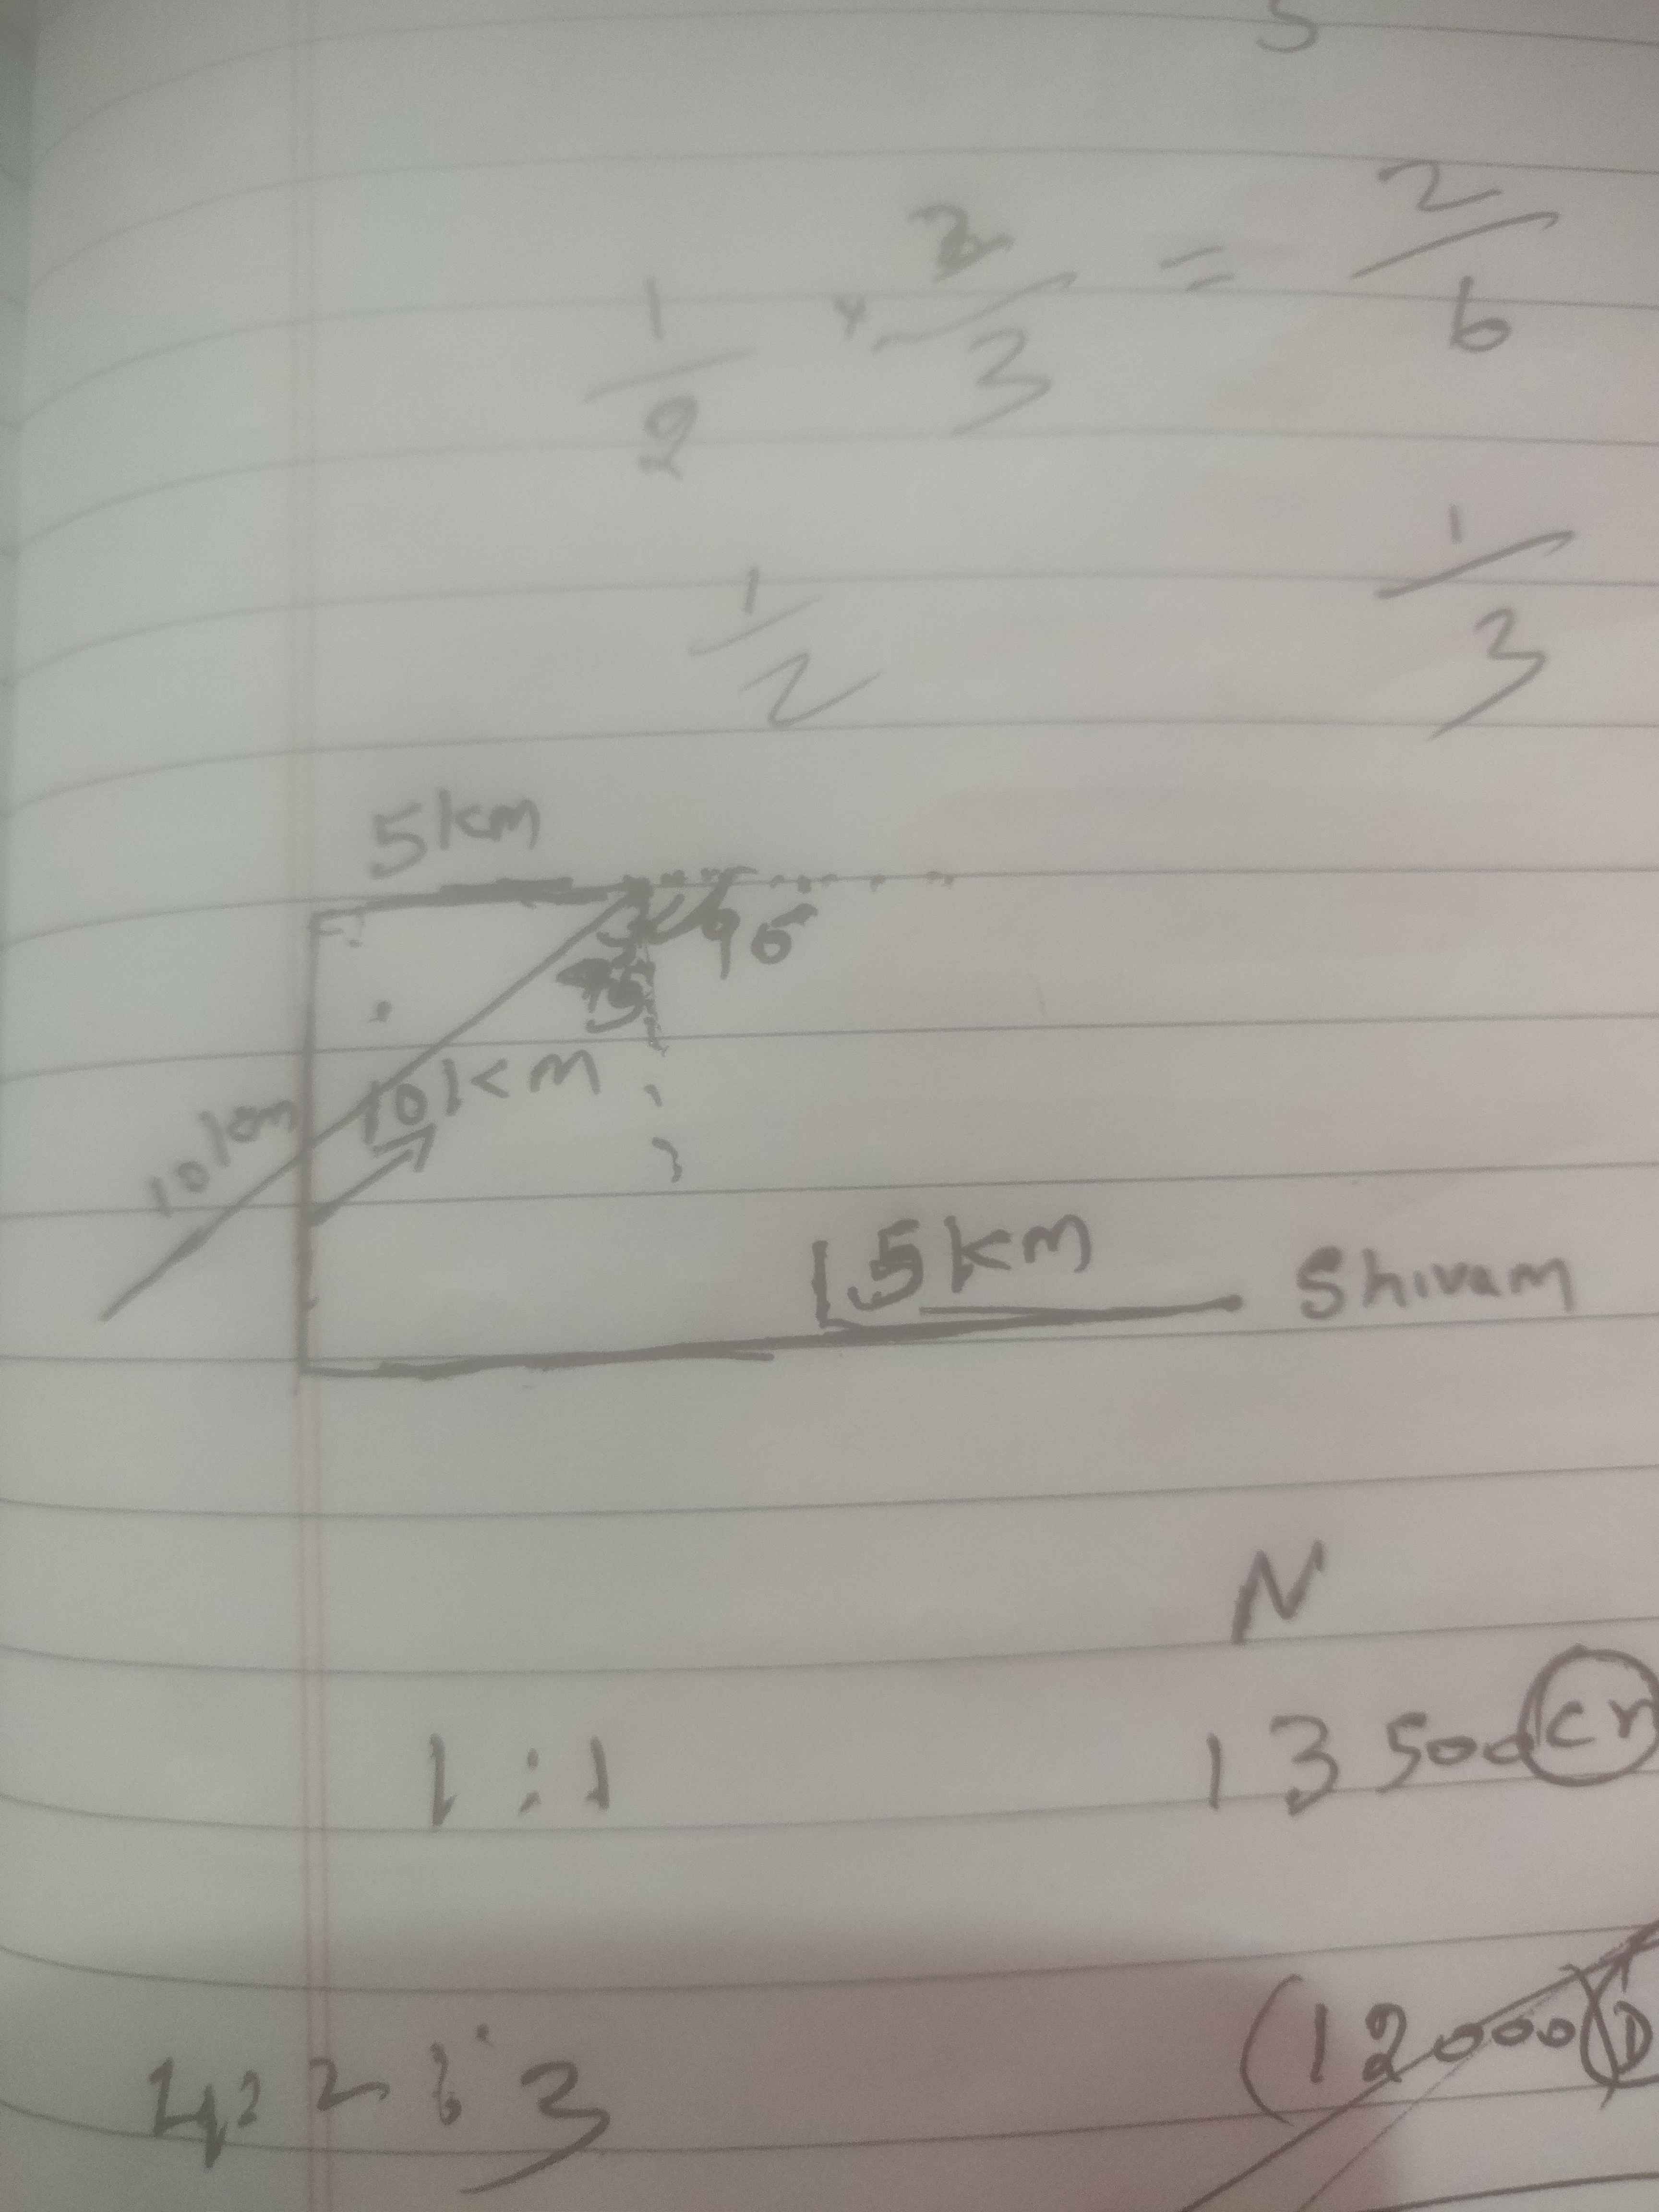 5
1/2 × 2/3 = 2/6
1/2 1/3
5km
95
10km 10km
15km Shivam
N
1:1 13500 cr
4:2:3 (12000) D